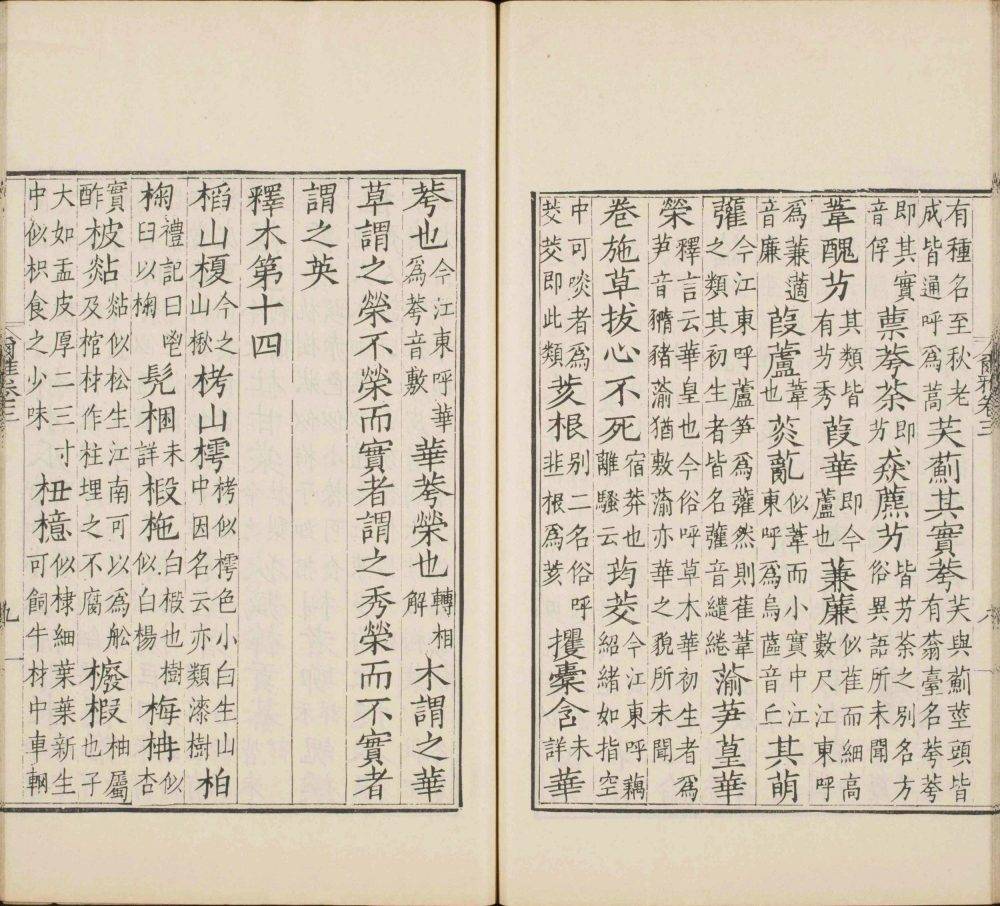 有種名至秋老成皆通呼爲蒿芺薊其實荂芺與薊莖頭皆有蓊臺名荂荂
即其實音俘蔈荂荼即芀猋藨芀皆芀荼之別名方俗異語所未聞
葦醜芀其類皆有芀秀葭華即今蘆也蒹薕似萑而細高數尺江東呼
爲蒹藡音廉葭蘆葦也菼薍似葦而小實中江東呼爲烏蓲音丘其萌
虇今江東呼蘆笋爲虇然則萑葦之類其初生者皆名虇音繾綣蕍芛葟華
榮釋言云華皇也今俗呼草木華初生者爲芛音豨豬蕍猶敷蕍亦華之貌所未聞
卷施草拔心不死宿莽也離騷云荺茭今江東呼藕紹緒如指空
中可啖者爲茭茭即此類荄根別二名俗呼韭根爲荄攫橐含未詳華
荂也今江東呼華爲荂音敷華荂榮也轉相解木謂之華
草謂之榮不榮而實者謂之秀榮而不實者
謂之英
釋木第十四
稻山榎今之山楸栲山樗栲似樗色小白生山中因名云亦類漆樹柏
椈禮記曰鬯臼以椈髡梱未詳椴柂白椴也樹似白楊梅柟似杏
實酢柀煔煔似松生江南可以爲船及棺材作柱埋之不腐櫠椵柚屬也子
大如盂皮厚二三寸中似枳食之少味杻檍似棣細葉葉新生可飼牛材中車輞